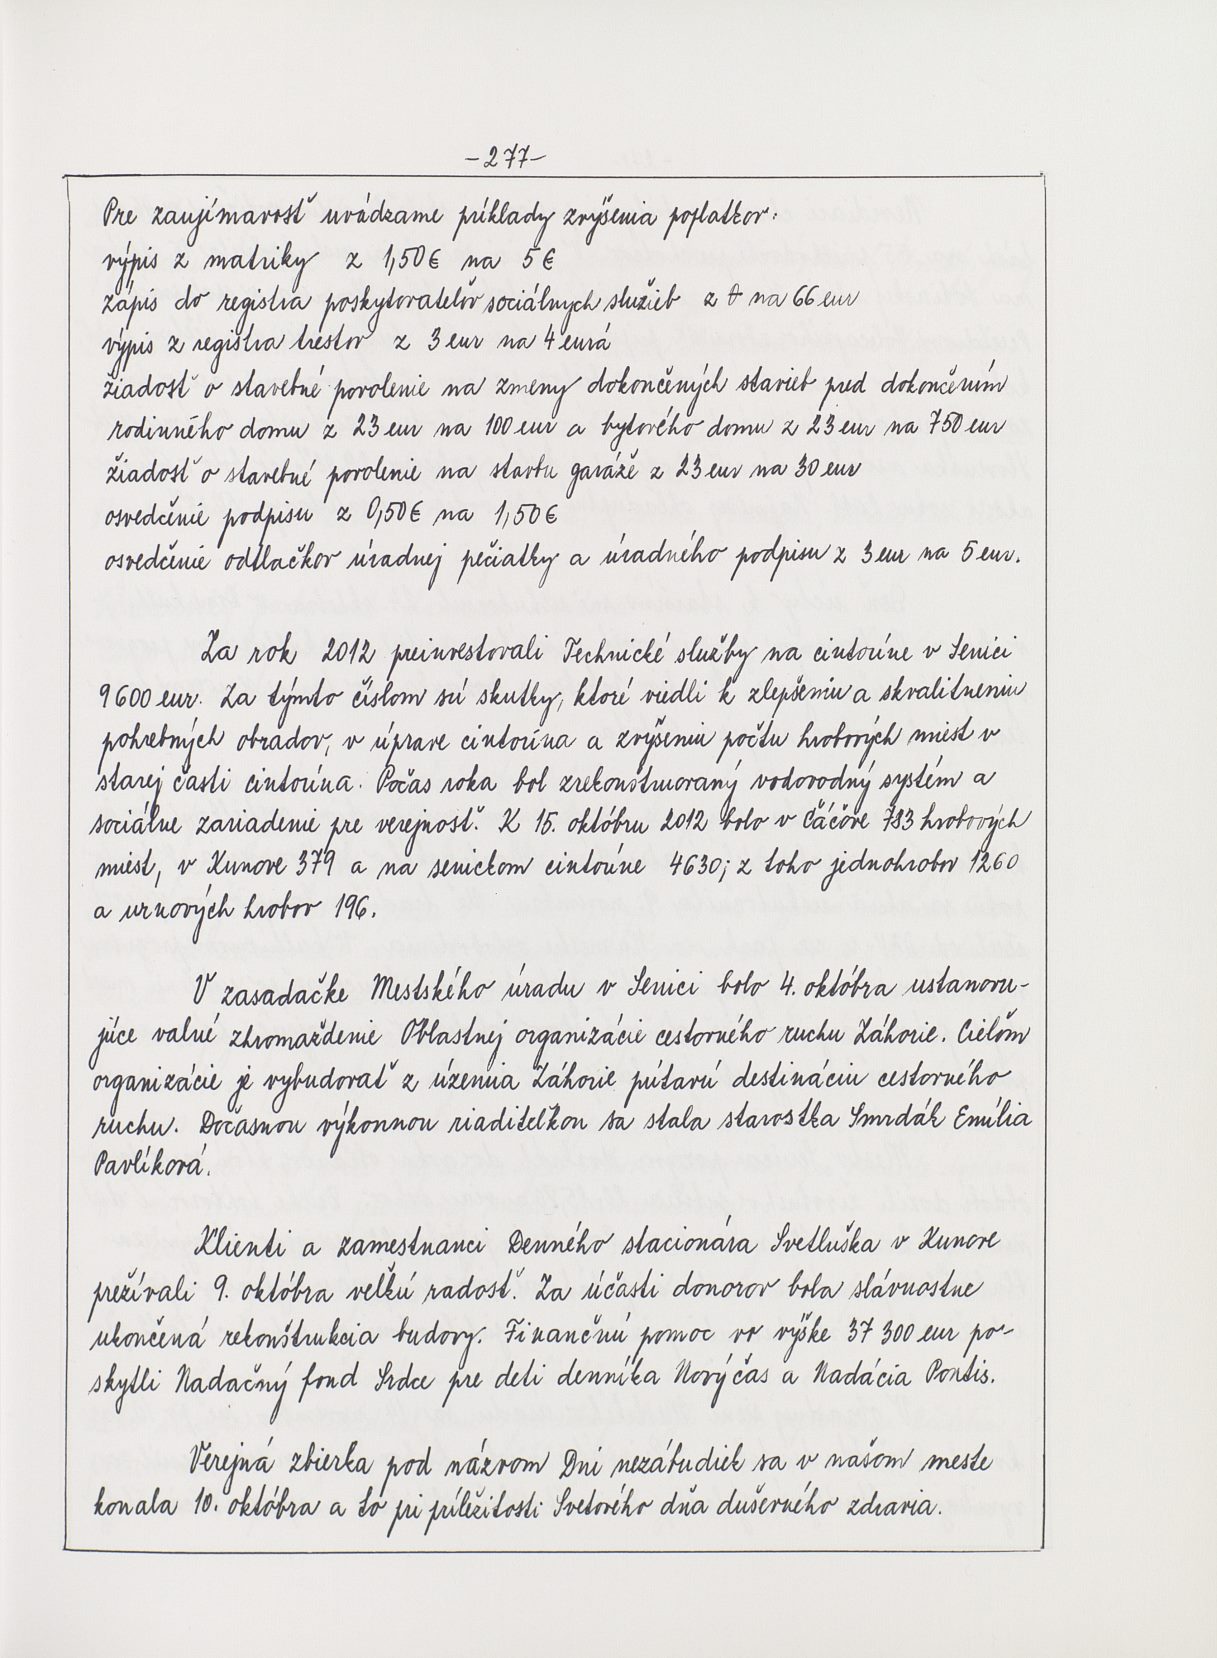 -277-
Pre zaujímavosť uvádzame príklady zvýšenia poplatkov:
výpis z matriky z 1,50€ na 5€
zápis do registra poskytovateľov sociálnych služieb z 0 na 66 eur
výpis z registra trestov z 3 eur na 4 eurá
žiadosť o stavebné povolenie na zmeny dokončených stavieb pred dokončením
rodinného domu z 23 eur na 100 eur a bytového domu z 23 eur na 750 eur
žiadosť o stavebné povolenie na stavbu garáže z 23 eur na 30 eur
osvedčenie podpisu z 0,50€ na 1,50€
osvedčenie odtlačkov úradnej pečiatky a úradného podpisu z 3 eur na 5 eur.
Za rok 2012 preinvestovali Technické služby na cintoríne v Senici
9600 eur. Za týmto číslom sú skutky, ktoré viedli k zlepšeniu a skvalitneniu
pohrebných obradov, v úprave cintorína a zvýšeniu počtu hrobových miest v
starej časti cintorína. Počas roka bol zrekonštruovaný vodovodný systém a
sociálne zariadenie pre verejnosť. K 15. októbru 2012 bolo v Čáčove 783 hrobových
miest, v Kunove 379 a na senickom cintoríne 4630; z toho jednohrobov 1260
a urnových hrobov 196.
V zasadačke Mestského úradu v Senici bolo 4. októbra ustanovu-
júce valné zhromaždenie Oblastnej organizácie cestovného ruchu Záhorie. Cieľom
organizácie je vybudovať z územia Záhorie pútavú destináciu cestovného
ruchu. Dočasnou výkonnou riaditeľkou sa stala starostka Smrdák Emília
Pavlíková.
Klienti a zamestnanci Denného stacionára Svetluška v Kunove
prežívali 9. októbra veľkú radosť. Za účasti donorov bola slávnostne
ukončená rekonštrukcia budovy. Finančnú pomoc vo výške 37 300 eur po-
skytli Nadačný fond Srdce pre deti denníka Nový čas a Nadácia Pontis.
Verejná zbierka pod názvom Dni nezábudiek sa v našom meste
konala 10. októbra a to pri príležitosti Svetového dňa duševného zdravia.